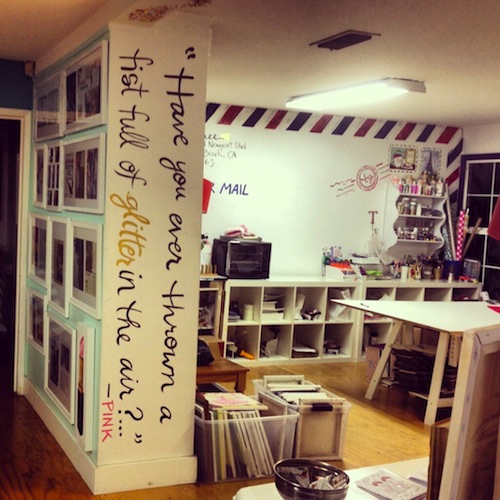 “Have you ever thrown a
fist full of glitter in the air?...”
- PINK
Newport Blvd.
Beach, CA
MAIL